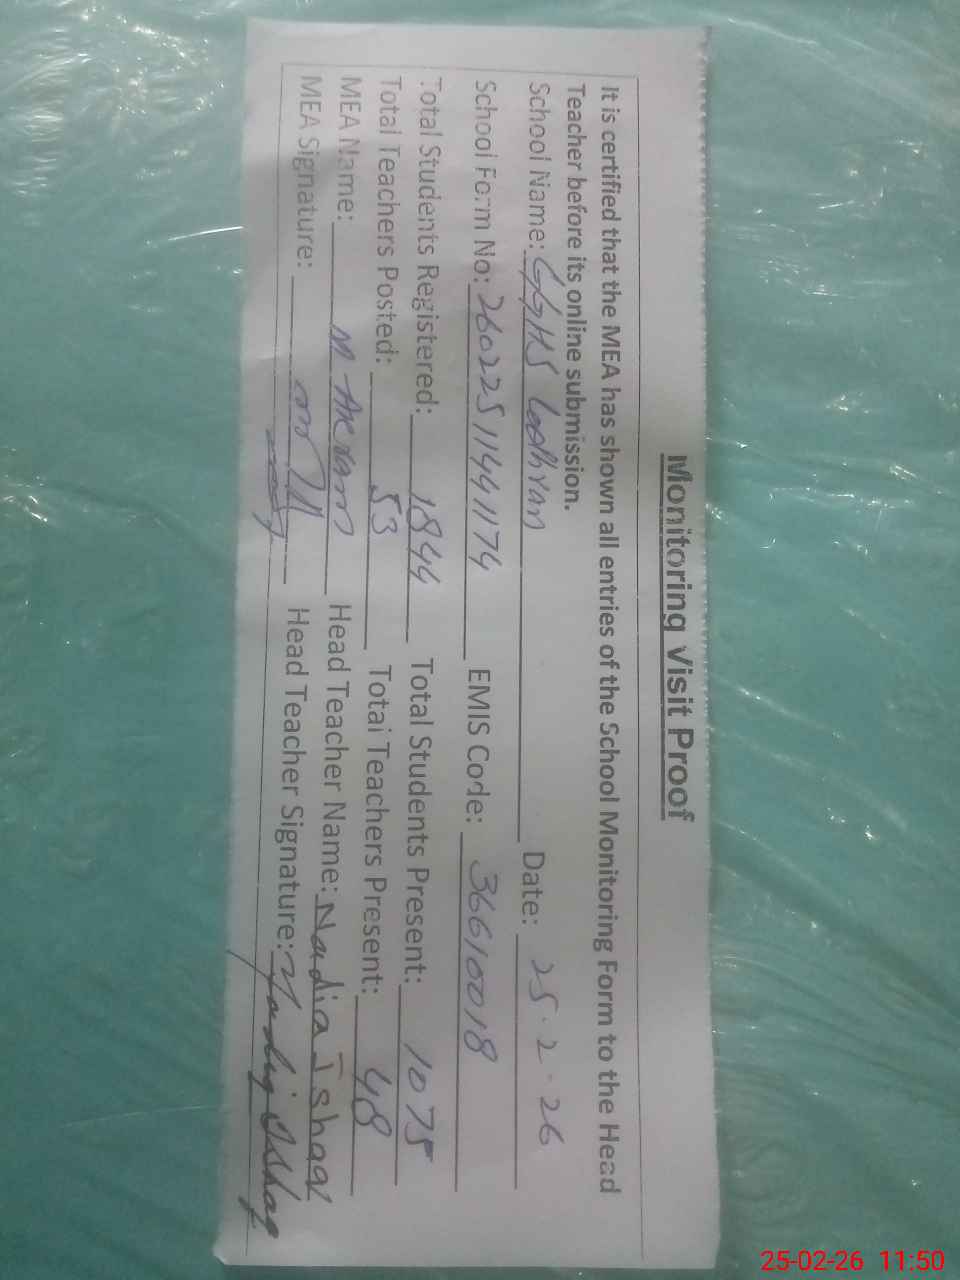 Monitoring Visit Proof
It is certified that the MEA has shown all entries of the School Monitoring Form to the Head
Teacher before its online submission.
School Name: GGHS Lodhran Date: 25.2-26
School Form No: 26022511441174 EMIS Code: 36610018
Total Students Registered: 1844 Total Students Present: 1075
Total Teachers Posted: 53 Total Teachers Present: 48
MEA Name: M. Akram Head Teacher Name: Nadia Ishaq
MEA Signature: Head Teacher Signature: Nadia Ishaq
25-02-26 11:50